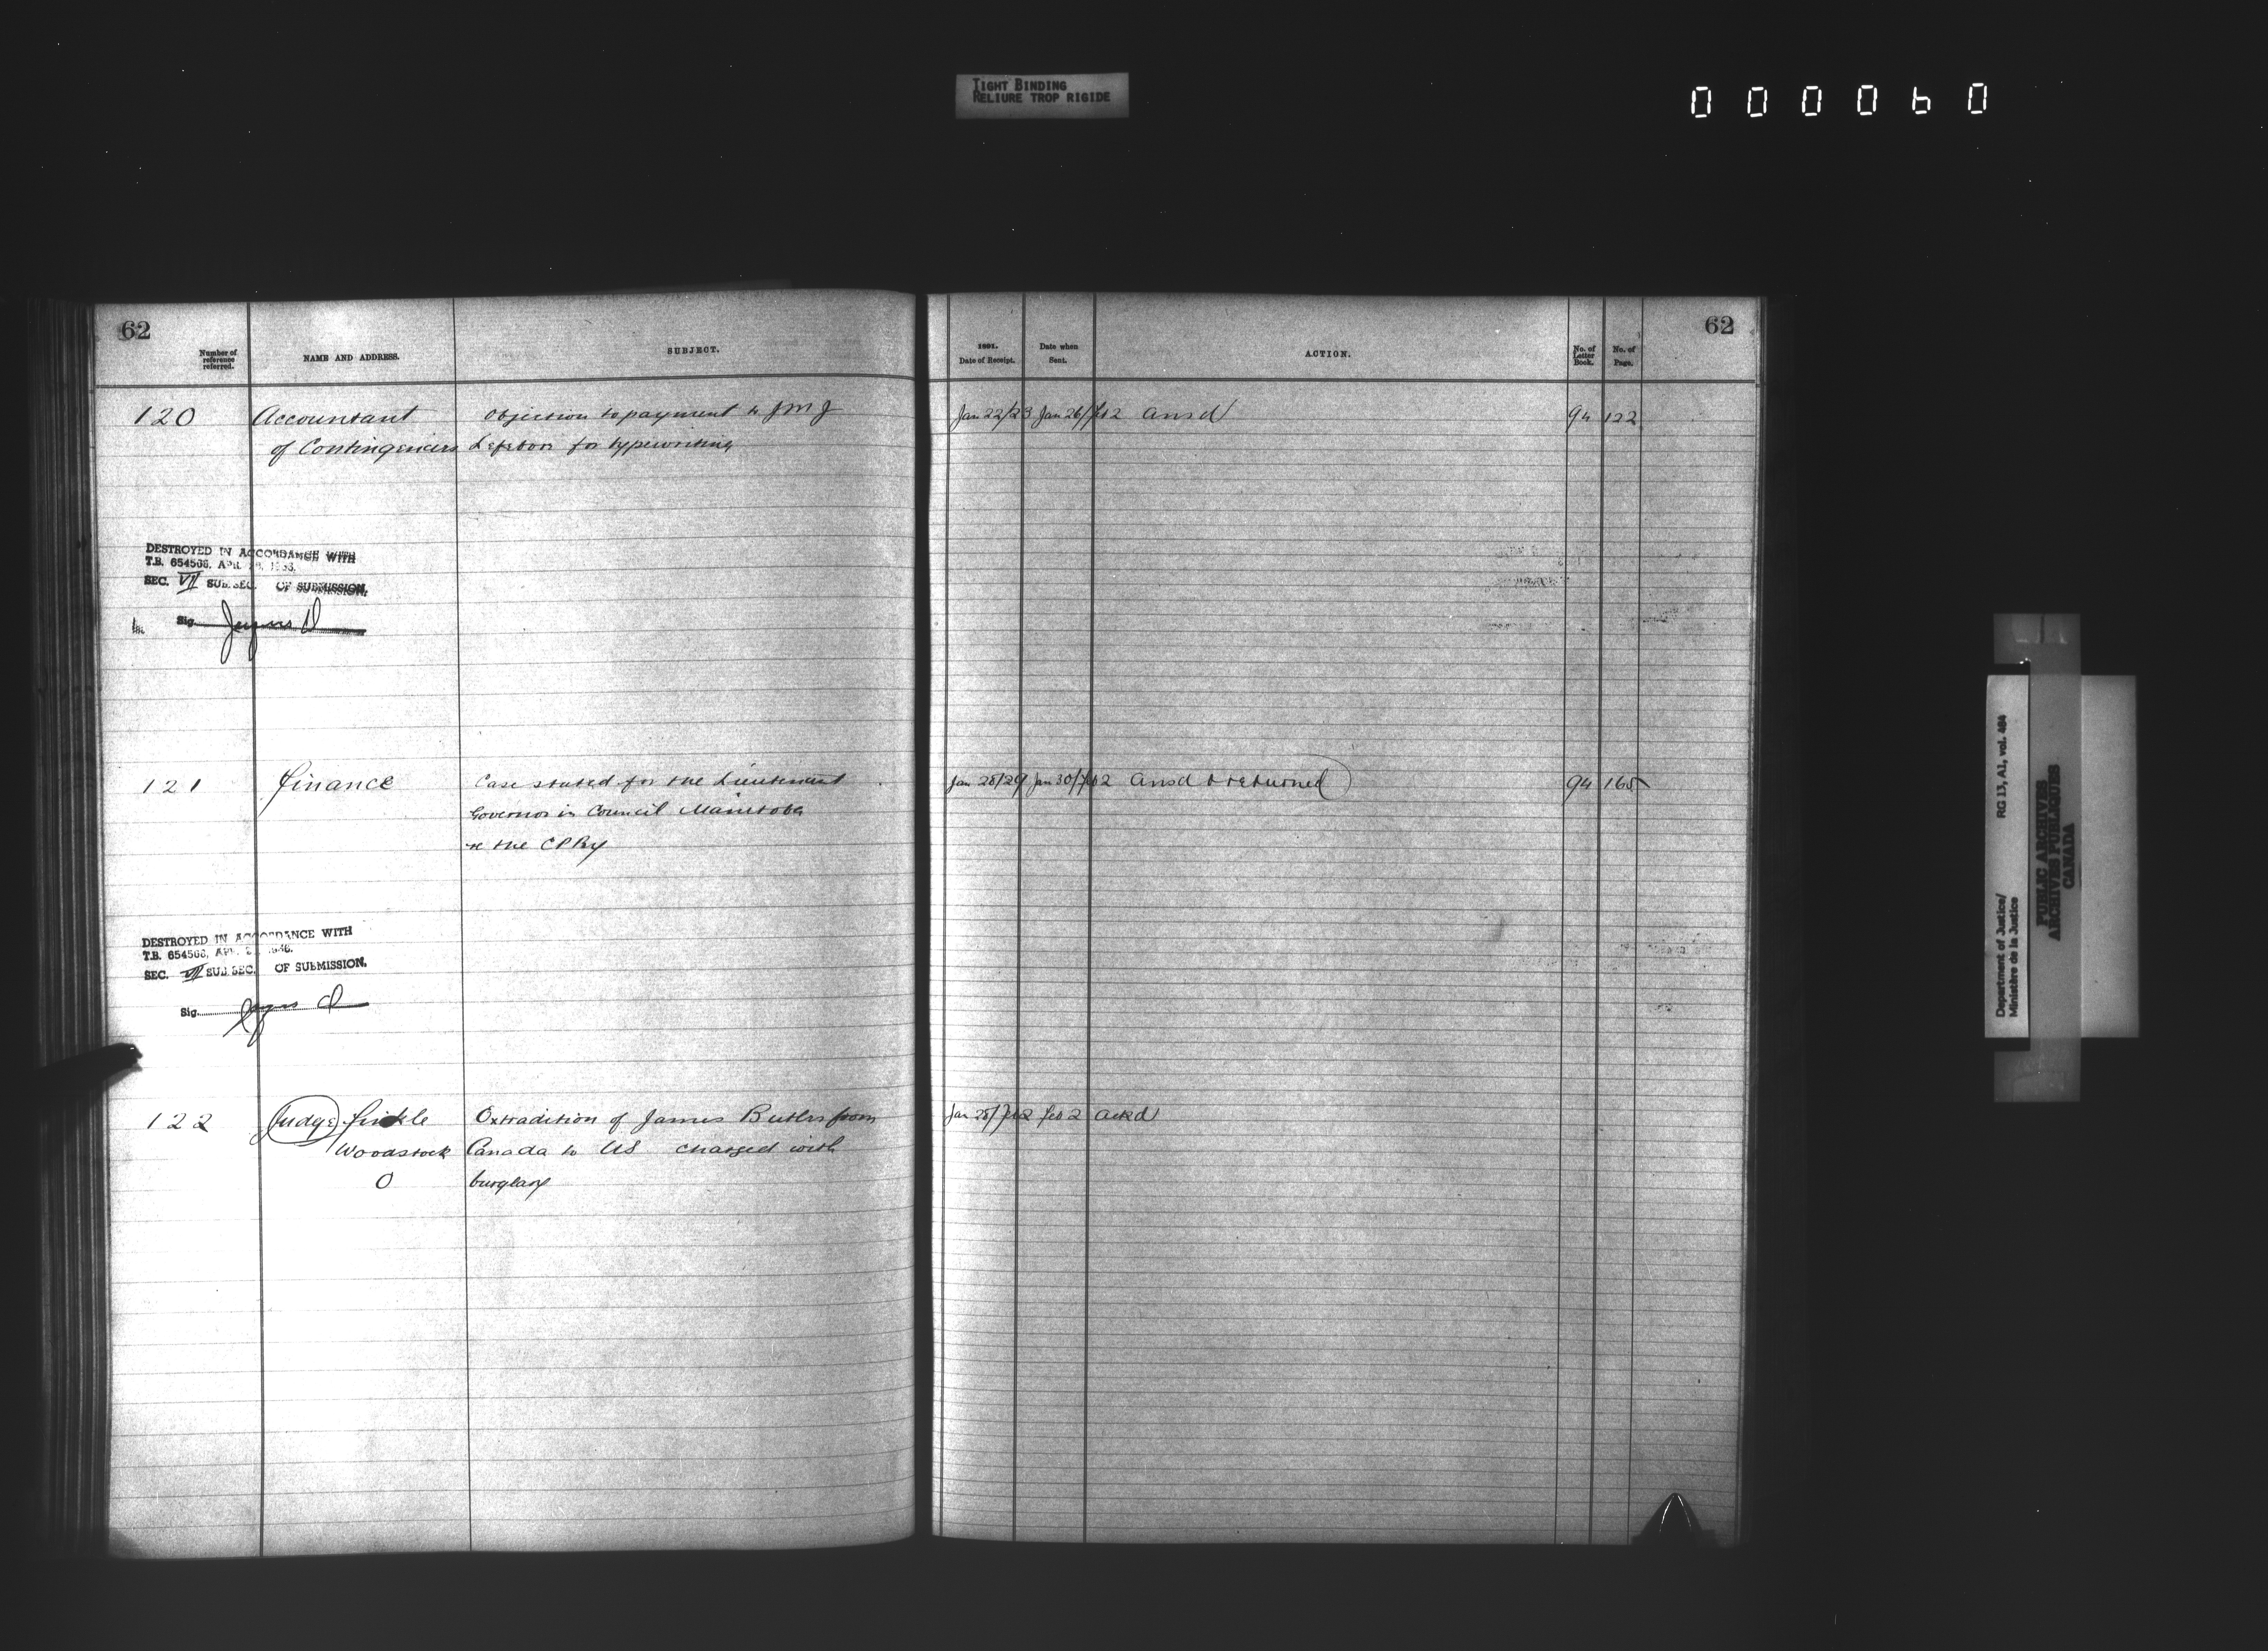 TIGHT BINDING
RELIURE TROP RIGIDE
000060
62
Number of reference referred.
NAME AND ADDRESS.
SUBJECT.
120 Accountant Objection to payment to J M J
of Contingencies Lefebvre for typewriting
DESTROYED IN ACCORDANCE WITH
T.B. 654506, APR.
SEC. VII SUB. SEC. OF SUBMISSION.
Sig.
121 Finance Case stated for the Lieutenant
Governor in Council Manitoba
re the CPRy
DESTROYED IN ACCORDANCE WITH
T.B. 654506, APR.
SEC. VII SUB. SEC. OF SUBMISSION.
Sig.
122 Judge Finkle Extradition of James Butler from
Woodstock Canada to US charged with
O burglary
62
1891.
Date of Receipt.
Date when Sent.
ACTION.
No. of Letter Book.
No. of Page.
Jan 22/23 Jan 26/Feb 2 ansd 94 122
Jan 28/29 Jan 30/Feb 2 ansd & returned 94 165
Jan 28/Feb 2 Feb 2 ackd
Department of Justice/
Ministère de la Justice
RG 13, A1, vol. 464
PUBLIC ARCHIVES
ARCHIVES PUBLIQUES
CANADA